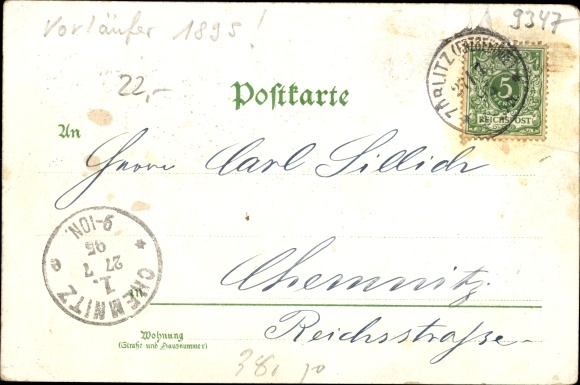 Vorläufer 1895!
9347
22,-
Postkarte
5
REICHSPOST
An
Herrn Carl Sillich
CHEMNITZ
1.
27 7
95
9-10N.
Chemnitz
in
Wohnung
(Straße und Hausnummer)
Reichsstraße